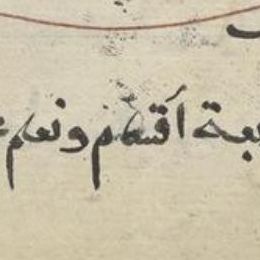 بعة أقسام ونعلم